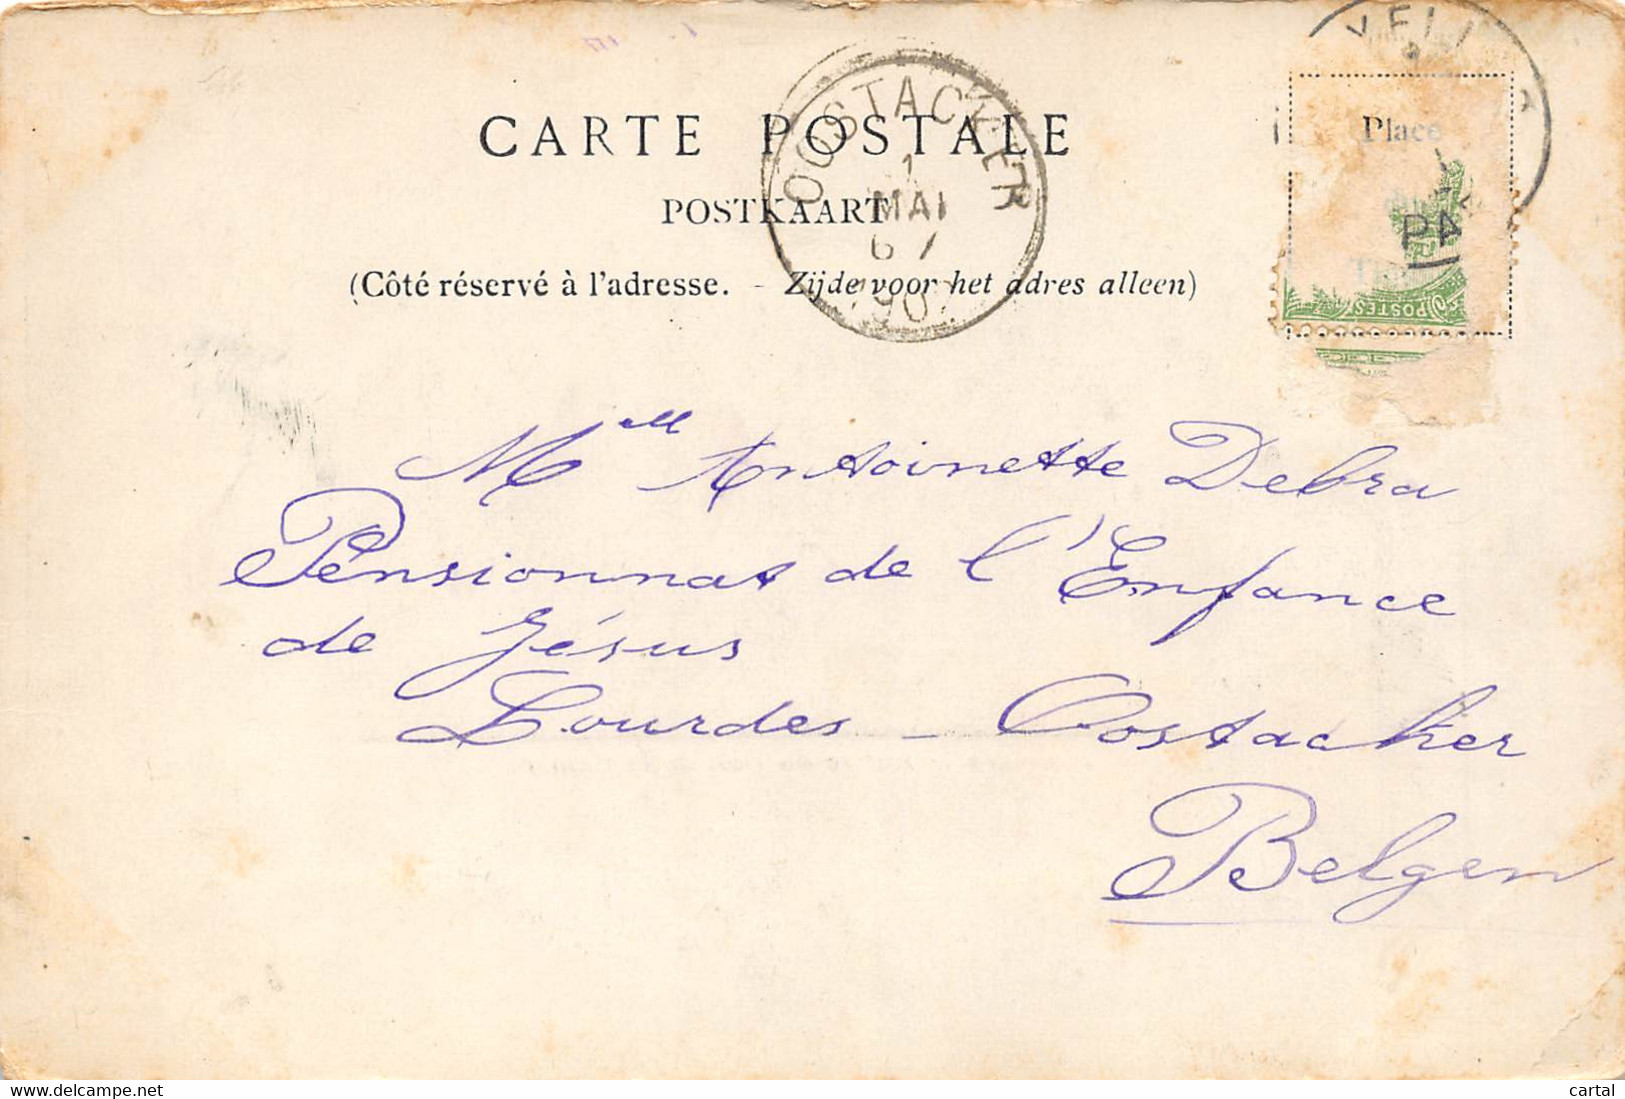 CARTE POSTALE
POSTKAART
(Côté réservé à l'adresse. - Zijde voor het adres alleen)
OOSTACKER
1
MAI
6
Place
POSTES
Mlle Antoinette Debra
Pensionnat de l'Enfance
de Jésus
Lourdes - Oostacker
Belgen
delcampe.net
cartal